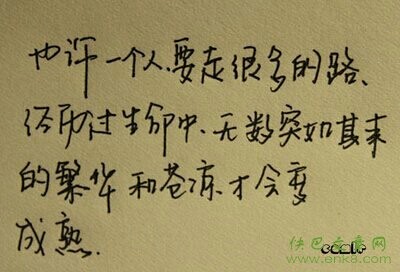 也许一个人、要走很多的路、
经历过生命中、无数突如其来
的繁华和苍凉.才会变
成熟.
www.enk8.com